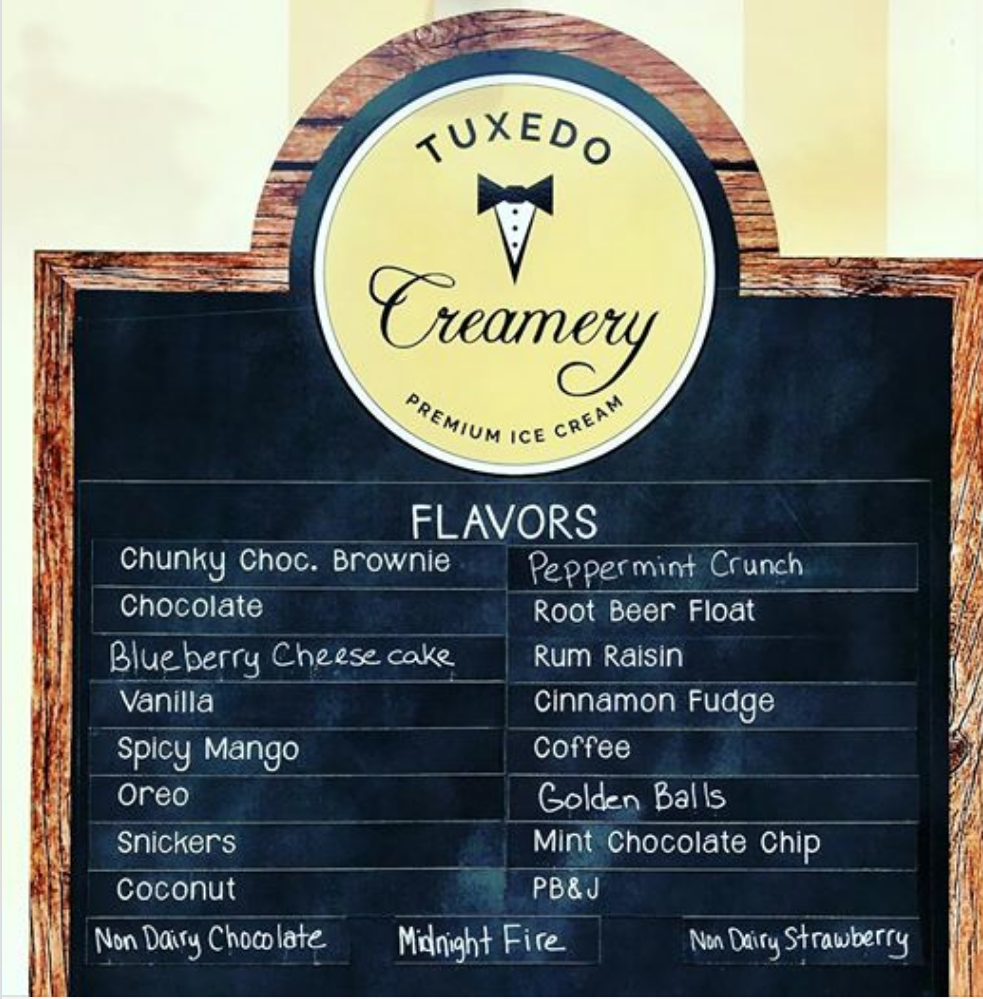 TUXEDO
Creamery
PREMIUM ICE CREAM
FLAVORS
Chunky Choc. Brownie
Chocolate
Blueberry Cheesecake
Vanilla
Spicy Mango
Oreo
Snickers
Coconut
Peppermint Crunch
Root Beer Float
Rum Raisin
Cinnamon Fudge
Coffee
Golden Balls
Mint Chocolate Chip
PB&J
Non Dairy Chocolate
Midnight Fire
Non Dairy Strawberry